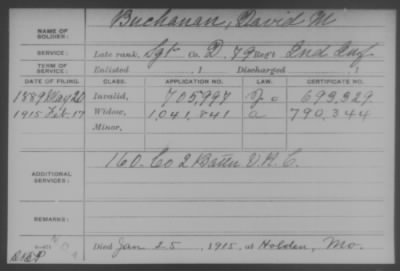 NAME OF SOLDIER: Buchanan, David M
SERVICE: Late rank, Sgt Co. D, 79 Regt Ind Inf
TERM OF SERVICE: Enlisted , 1 Discharged , 1
DATE OF FILING. CLASS. APPLICATION NO. LAW. CERTIFICATE NO.
1889 May 20 Invalid, 705,997 693,329
1915 Feb 17 Widow, 1,041,841 a 790,344
Minor,
ADDITIONAL SERVICES: 160. Co 2 Batt'n V.R.C.
REMARKS:
Died Jan 25, 1915, at Holden, Mo.